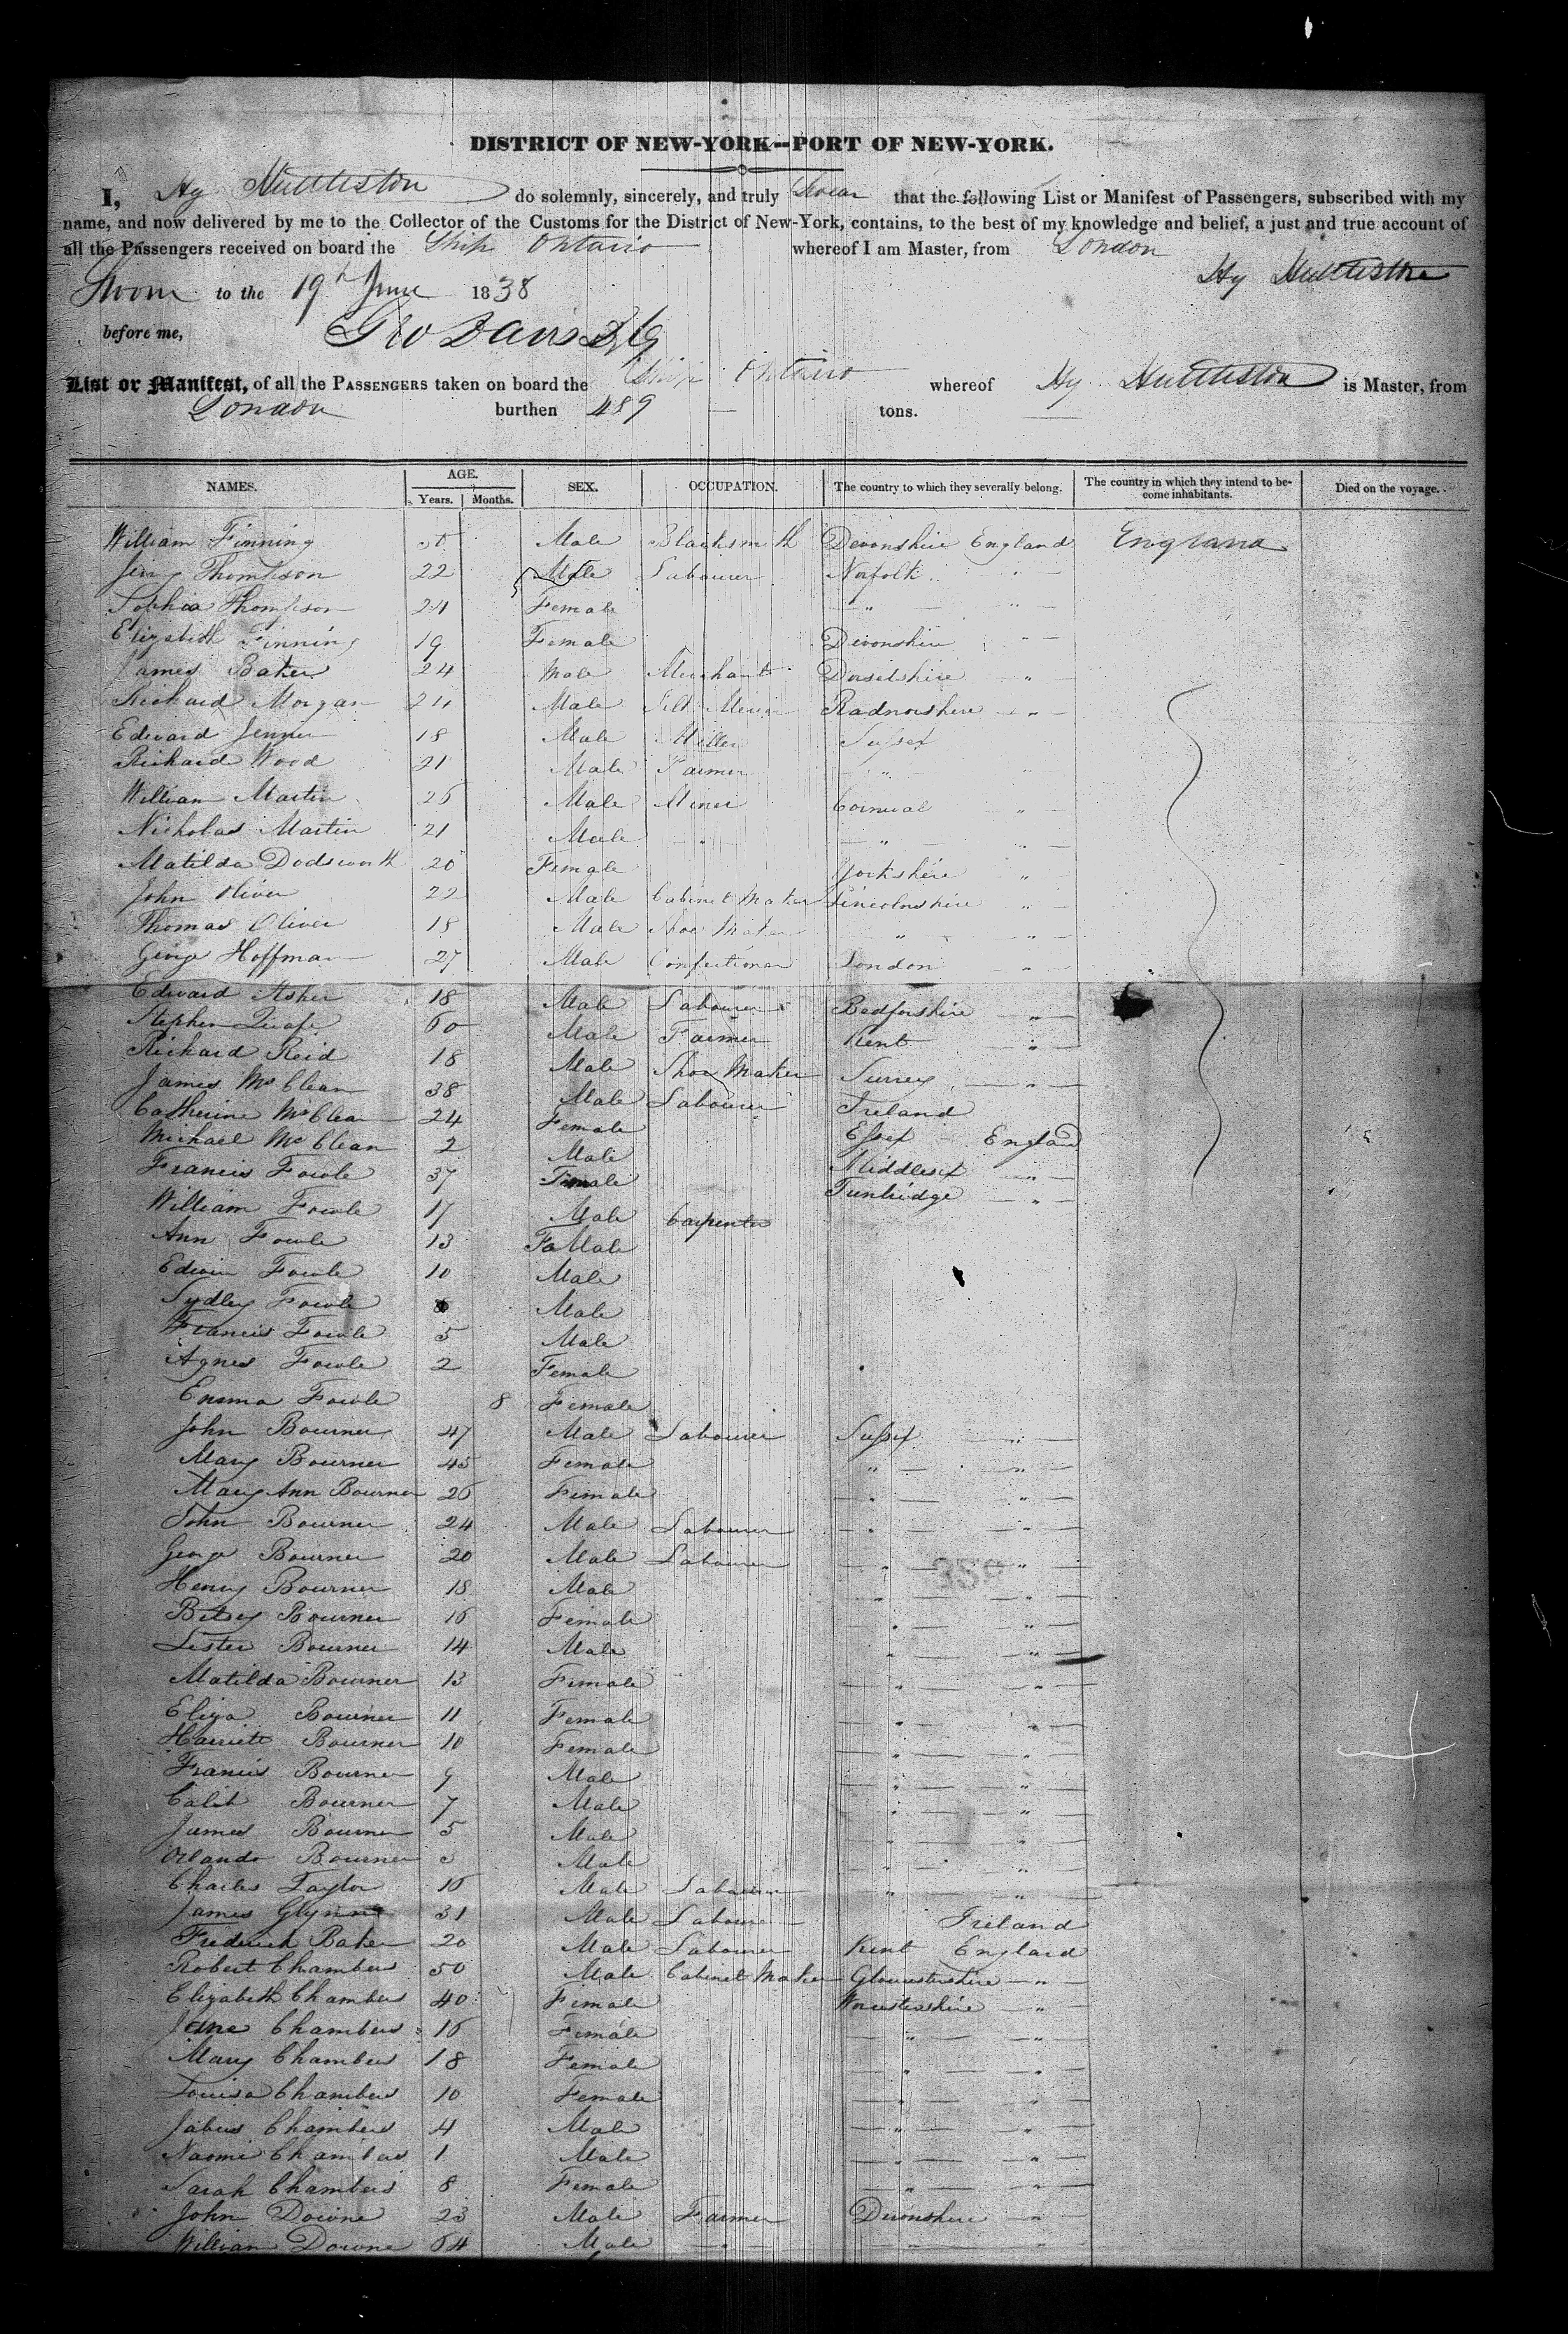 DISTRICT OF NEW-YORK--PORT OF NEW-YORK.
I, Hy Huttleston do solemnly, sincerely, and truly Swear that the following List or Manifest of Passengers, subscribed with my
name, and now delivered by me to the Collector of the Customs for the District of New-York, contains, to the best of my knowledge and belief, a just and true account of
all the Passengers received on board the Ship Ontario whereof I am Master, from London
Sworn to the 19th June 1838 Hy Huttleston
before me, Geo Davis
List or Manifest, of all the PASSENGERS taken on board the Ship Ontario whereof Hy Huttleston is Master, from
London burthen 489 tons.
NAMES. AGE. Years. Months. SEX. OCCUPATION. The country to which they severally belong. The country in which they intend to become inhabitants. Died on the voyage.
William Finning Male Blacksmith Devonshire England England
Thompson 22 Male Labourer Norfolk " 
Sophia Thompson 24 Female " "
Elizabeth Finning 19 Female Devonshire "
James Baker 24 Male Merchant Dorsetshire "
Richard Morgan 24 Male Radnorshire "
Edward Jenner 18 Male Miller Sussex
Richard Wood 21 Male Farmer " "
William Martin 26 Male Miner Cornwal "
Nicholas Martin 21 Male " " "
Matilda Dodsworth 20 Female Yorkshire "
John Oliver 22 Male Cabinet Maker Lincolnshire "
Thomas Oliver 18 Male Shoe Maker " "
George Hoffman 27 Male Confectioner London "
Edward Asher 18 Male Labourer Bedforshire "
Stephen Quaife 60 Male Farmer Kent "
Richard Reid 18 Male Shoe Maker Surrey "
James McClean 38 Male Labourer Ireland
Catherine McClean 24 Female Essex England
Michael McClean 2 Male Middlesex "
Francis Fowle 37 Female Tunbidge "
William Fowle 17 Male Carpenter
Ann Fowle 13 FaMale
Edwin Fowle 10 Male
Sydley Fowle Male
Francis Fowle 5 Male
Agnes Fowle 2 Female
Emma Fowle 8 Female
John Bourner 47 Male Labourer Sussex "
Mary Bourner 45 Female " "
Mary Ann Bourner 26 Female " "
John Bourner 24 Male Labourer " "
George Bourner 20 Male Labourer " "
Henry Bourner 18 Male " "
Betsey Bourner 16 Female " "
Lester Bourner 14 Male " "
Matilda Bourner 13 Female " "
Eliza Bourner 11 Female " "
Harriett Bourner 10 Female " "
Francis Bourner 9 Male " "
Calib Bourner 7 Male " "
James Bourner 5 Male " "
Orlando Bourner 3 Male " "
Charles Taylor 16 Male Labourer " "
James Glynn 31 Male Labourer Ireland
Frederick Baker 20 Male Labourer Kent England
Robert Chambers 50 Male Cabinet Maker Gloucestershire "
Elizabeth Chambers 40 Female Worcestershire "
Jane Chambers 16 Female " "
Mary Chambers 18 Female " "
Louisa Chambers 10 Female " "
Jabus Chambers 4 Male " "
Naomi Chambers 1 Male " "
Sarah Chambers 8 Female " "
John Downe 23 Male Farmer Devonshire "
William Downe 64 Male " " "